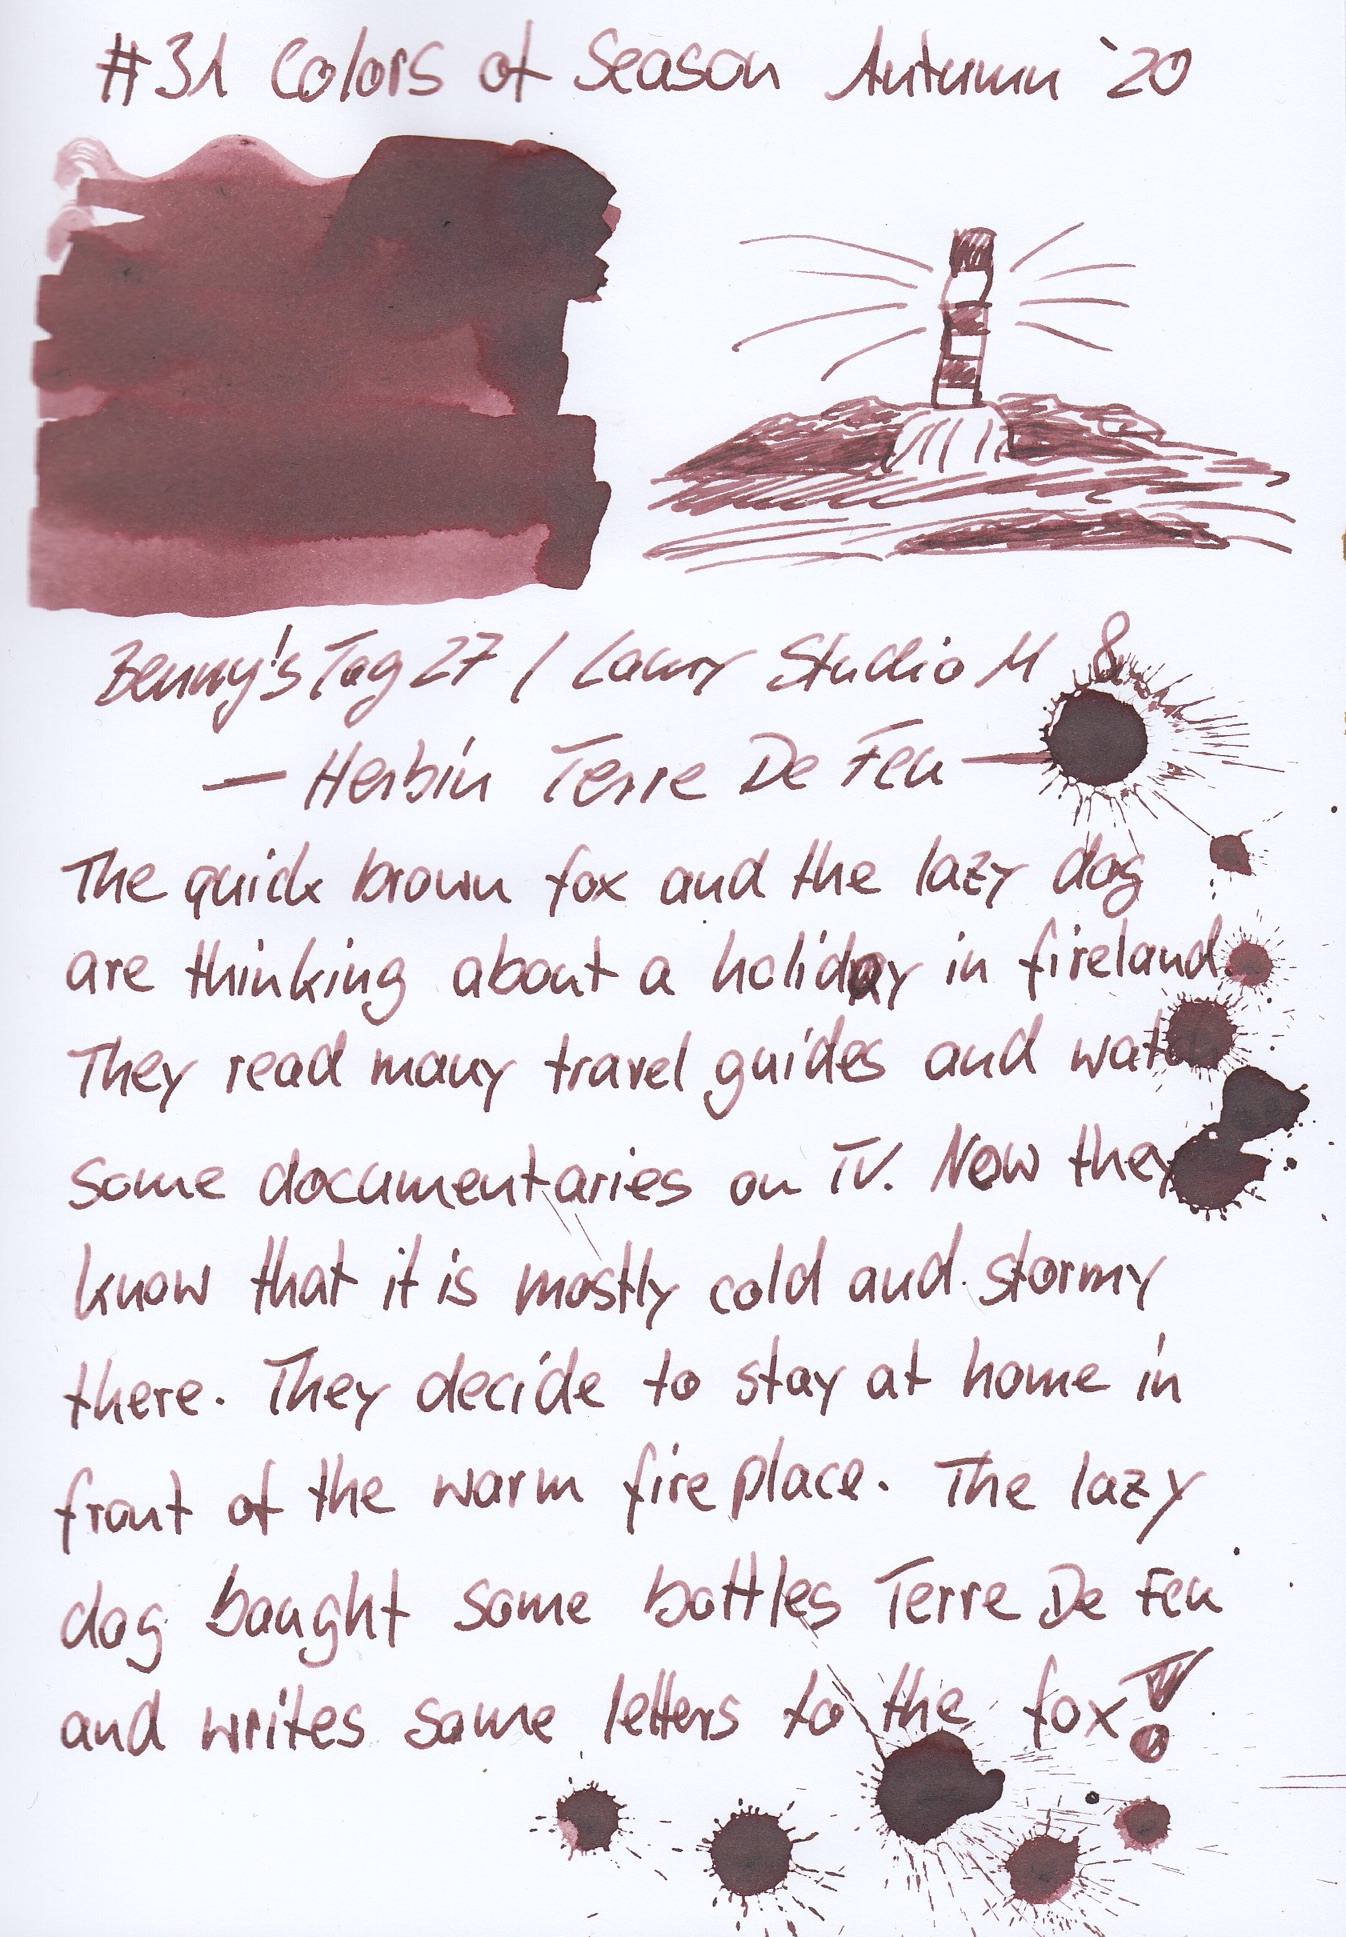 #31 Colors of Season Autumn `20
Benny's Tag 27 / Lamy Studio M &
— Herbin Terre De Feu —
The quick brown fox and the lazy dog
are thinking about a holiday in fireland.
They read many travel guides and watch
some documentaries on TV. Now they
know that it is mostly cold and stormy
there. They decide to stay at home in
front of the warm fireplace. The lazy
dog bought some bottles Terre De Feu
and writes some letters to the fox!